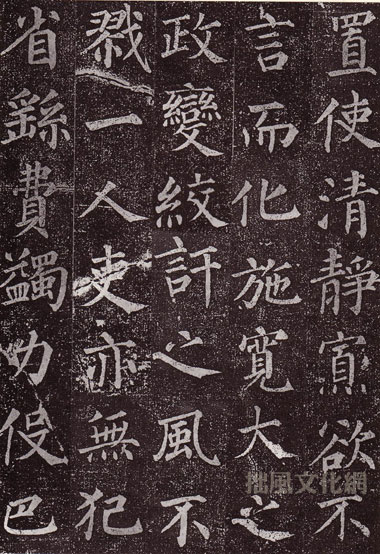 置使清靜寡欲不
言而化施寬大之
政變絞訐之風不
戮一人吏亦無犯
省繇費蠲力伇巴
拙風文化網